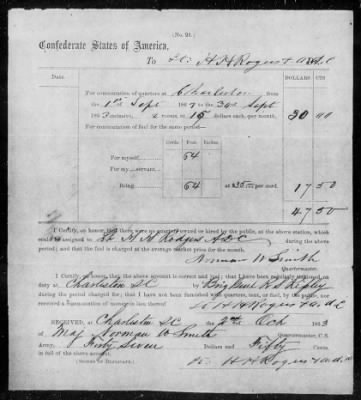 (No. 21.)
Confederate States of America,
To Lt. H H Rogers A.D.C
DATE. DOLLARS CTS
For commutation of quarters at Charleston
from the 1st Sept 186 to the 30th Sept
186 3 inclusive, 2 rooms at 15 dollars each, per month, 30 00
For commutation of fuel for the same period—
Cords Feet Inches
For myself, 64
For my servant,
Being 64 at $35.00 per cord. 17 50
47 50
I Certify, on honor, that there were no quarters owned or hired by the public, at the above station, which
could be assigned to Lt H H Rodgers ADC during the above
period; and that the market price of fuel was during the above period.
Norman W Smith
Quartermaster.
I Certify, on honor, that the above account is correct and just; that I have been regularly stationed on
duty at Charleston SC by Brig Genl R S Ripley
during the period charged for; that I have not been furnished with quarters, tent, or fuel, by the public, nor
received a commutation of money in lieu thereof.
H H Rogers A.D.C
RECEIVED, at Charleston SC the 2nd Oct 186 3
of Maj Norman W Smith Quartermaster, C.S.
Army, Forty Seven Dollars and Fifty Cents,
in full of the above account.
(SIGNED IN DUPLICATE.) H H Rogers A.D.C